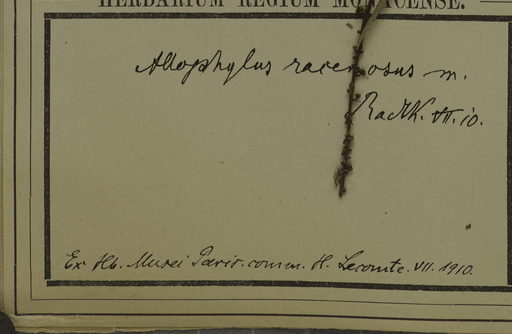 HERBARIUM REGIUM MONACENSE.
Allophylus racemosus m.
Radlk. VII. 10.
Ex Hb. Musei Paris. comm. H. Lecomte. VII. 1910.